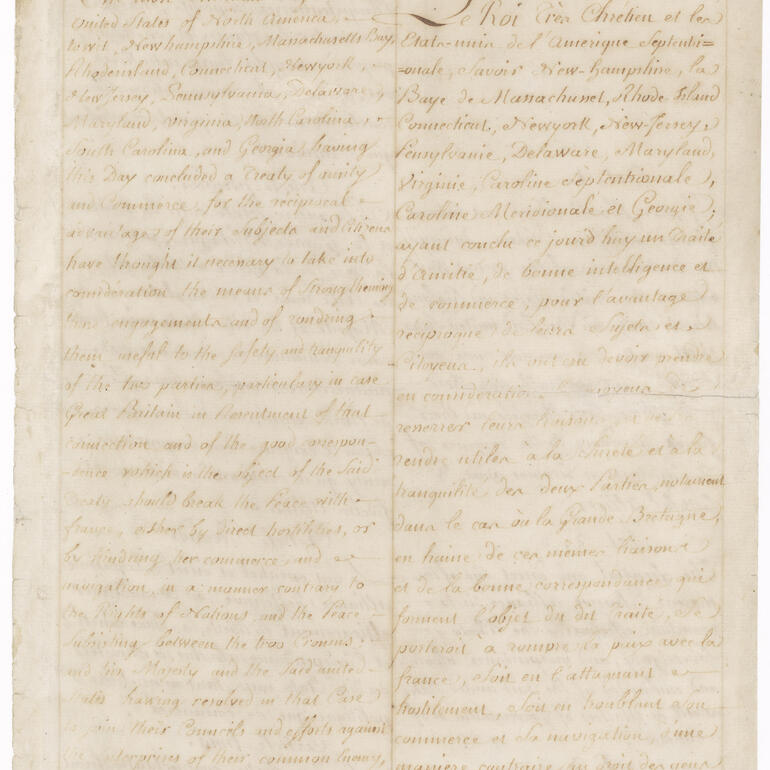 United States of North America,
to wit, Newhampshire, Massachusetts Bay,
Rhodeisland, Connecticut, Newyork,
New Jersey, Pennsylvania, Delaware,
Maryland, Virginia, North Carolina,
South Carolina, and Georgia, having
this Day concluded a Treaty of amity
and Commerce, for the reciprocal
advantage of their Subjects and Citizens
have thought it necessary to take into
consideration the means of Strengthening
those engagements and of rondring
them useful to the safety and tranquility
of the two parties, particularly in case
Great Britain in Resentment of that
connection and of the good correspon-
-dence which is the object of the Said
Treaty, should break the Peace with
france, either by direct hostilities, or
by hindring her commerce and
navigation, in a manner contrary to
the Rights of Nations, and the Peace
Subsisting between the two Crowns;
and his Majesty and the Said united
States having resolved in that Case
to join their Councils and efforts against
the Enterprises of their common Enemy,
Le Roi Très Chrétien et les
Etats-unis de l'Amerique Septentri=
=onale, Savoir New-hampshire, la
Baye de Massachuset, Rhode Island
Connecticut, Newyork, New-Jersey,
Pensylvanie, Delaware, Maryland,
Virginie, Caroline Septentrionale,
Caroline Meridionale et Georgie;
ayant conclu ce jourd'huy un Traité
d'Amitié, de bonne intelligence et
de commerce, pour l'avantage
reciproque de leurs Sujets et
Citoyens, ils ont cru devoir prendre
en consideration moyens de
resserrer leurs liaisons,
rendre utiles à la Sureté et à la
tranquilité des deux Parties, notament
dans le cas où la Grande Bretagne,
en haine de ces mêmes liaisons
et de la bonne correspondance qui
forment l'objet du dit Traité, Se
porteroit à rompre la paix avec la
france, Soit en l'attaquant
hostilement, Soit en troublant Son
commerce et Sa navigation, d'une
maniere contraire au droit des gens